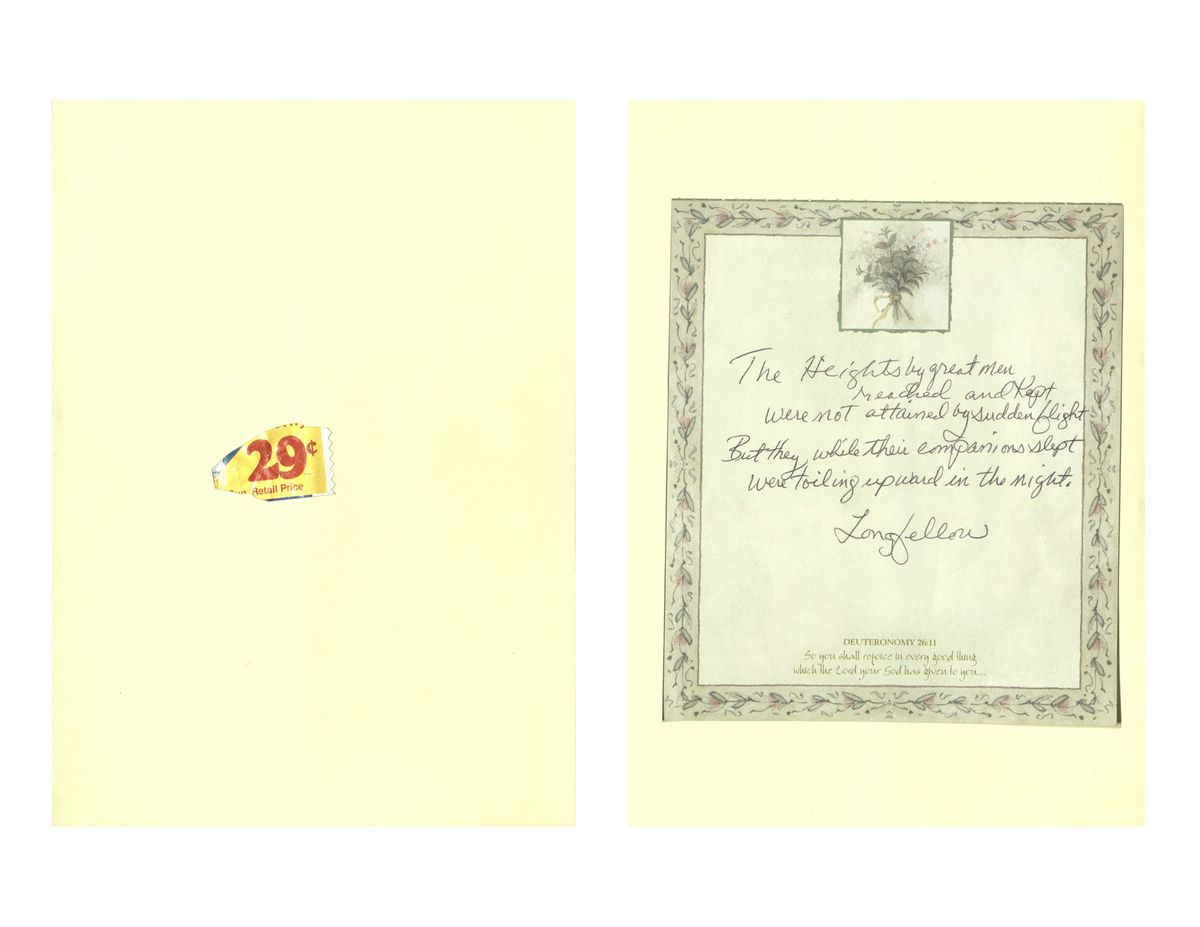 29¢
Retail Price
The Heights by great men
reached and Kept
were not attained by sudden flight
But they while their companions slept
were toiling upward in the night.
Longfellow
DEUTERONOMY 26:11
So you shall rejoice in every good thing
which the Lord your God has given to you...